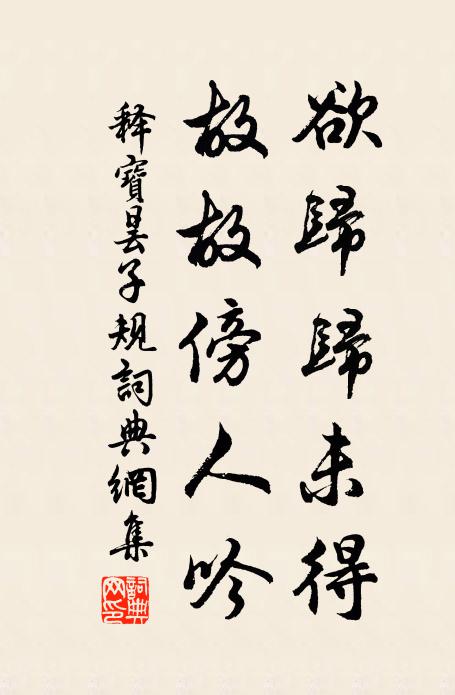 欲歸歸未得
故故傍人吟
释寶曇子規詞典網集
詞典网印